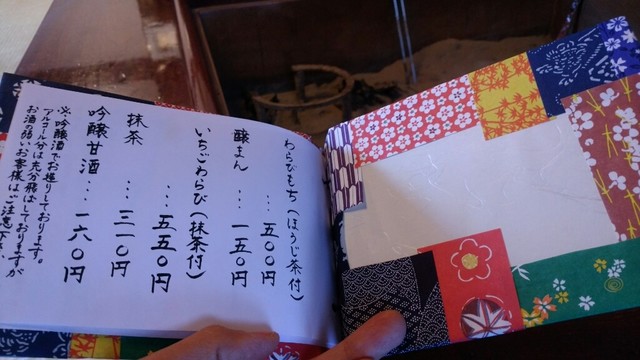 わらびもち(ほうじ茶付)
…五〇〇円
醸まん…一五〇円
いちごわらび(抹茶付)
…五五〇円
抹茶…三一〇円
吟醸甘酒…一六〇円
※吟醸酒でお造りしております。
アルコール分は充分飛ばしておりますが
お酒の弱いお客様はご注意下さい